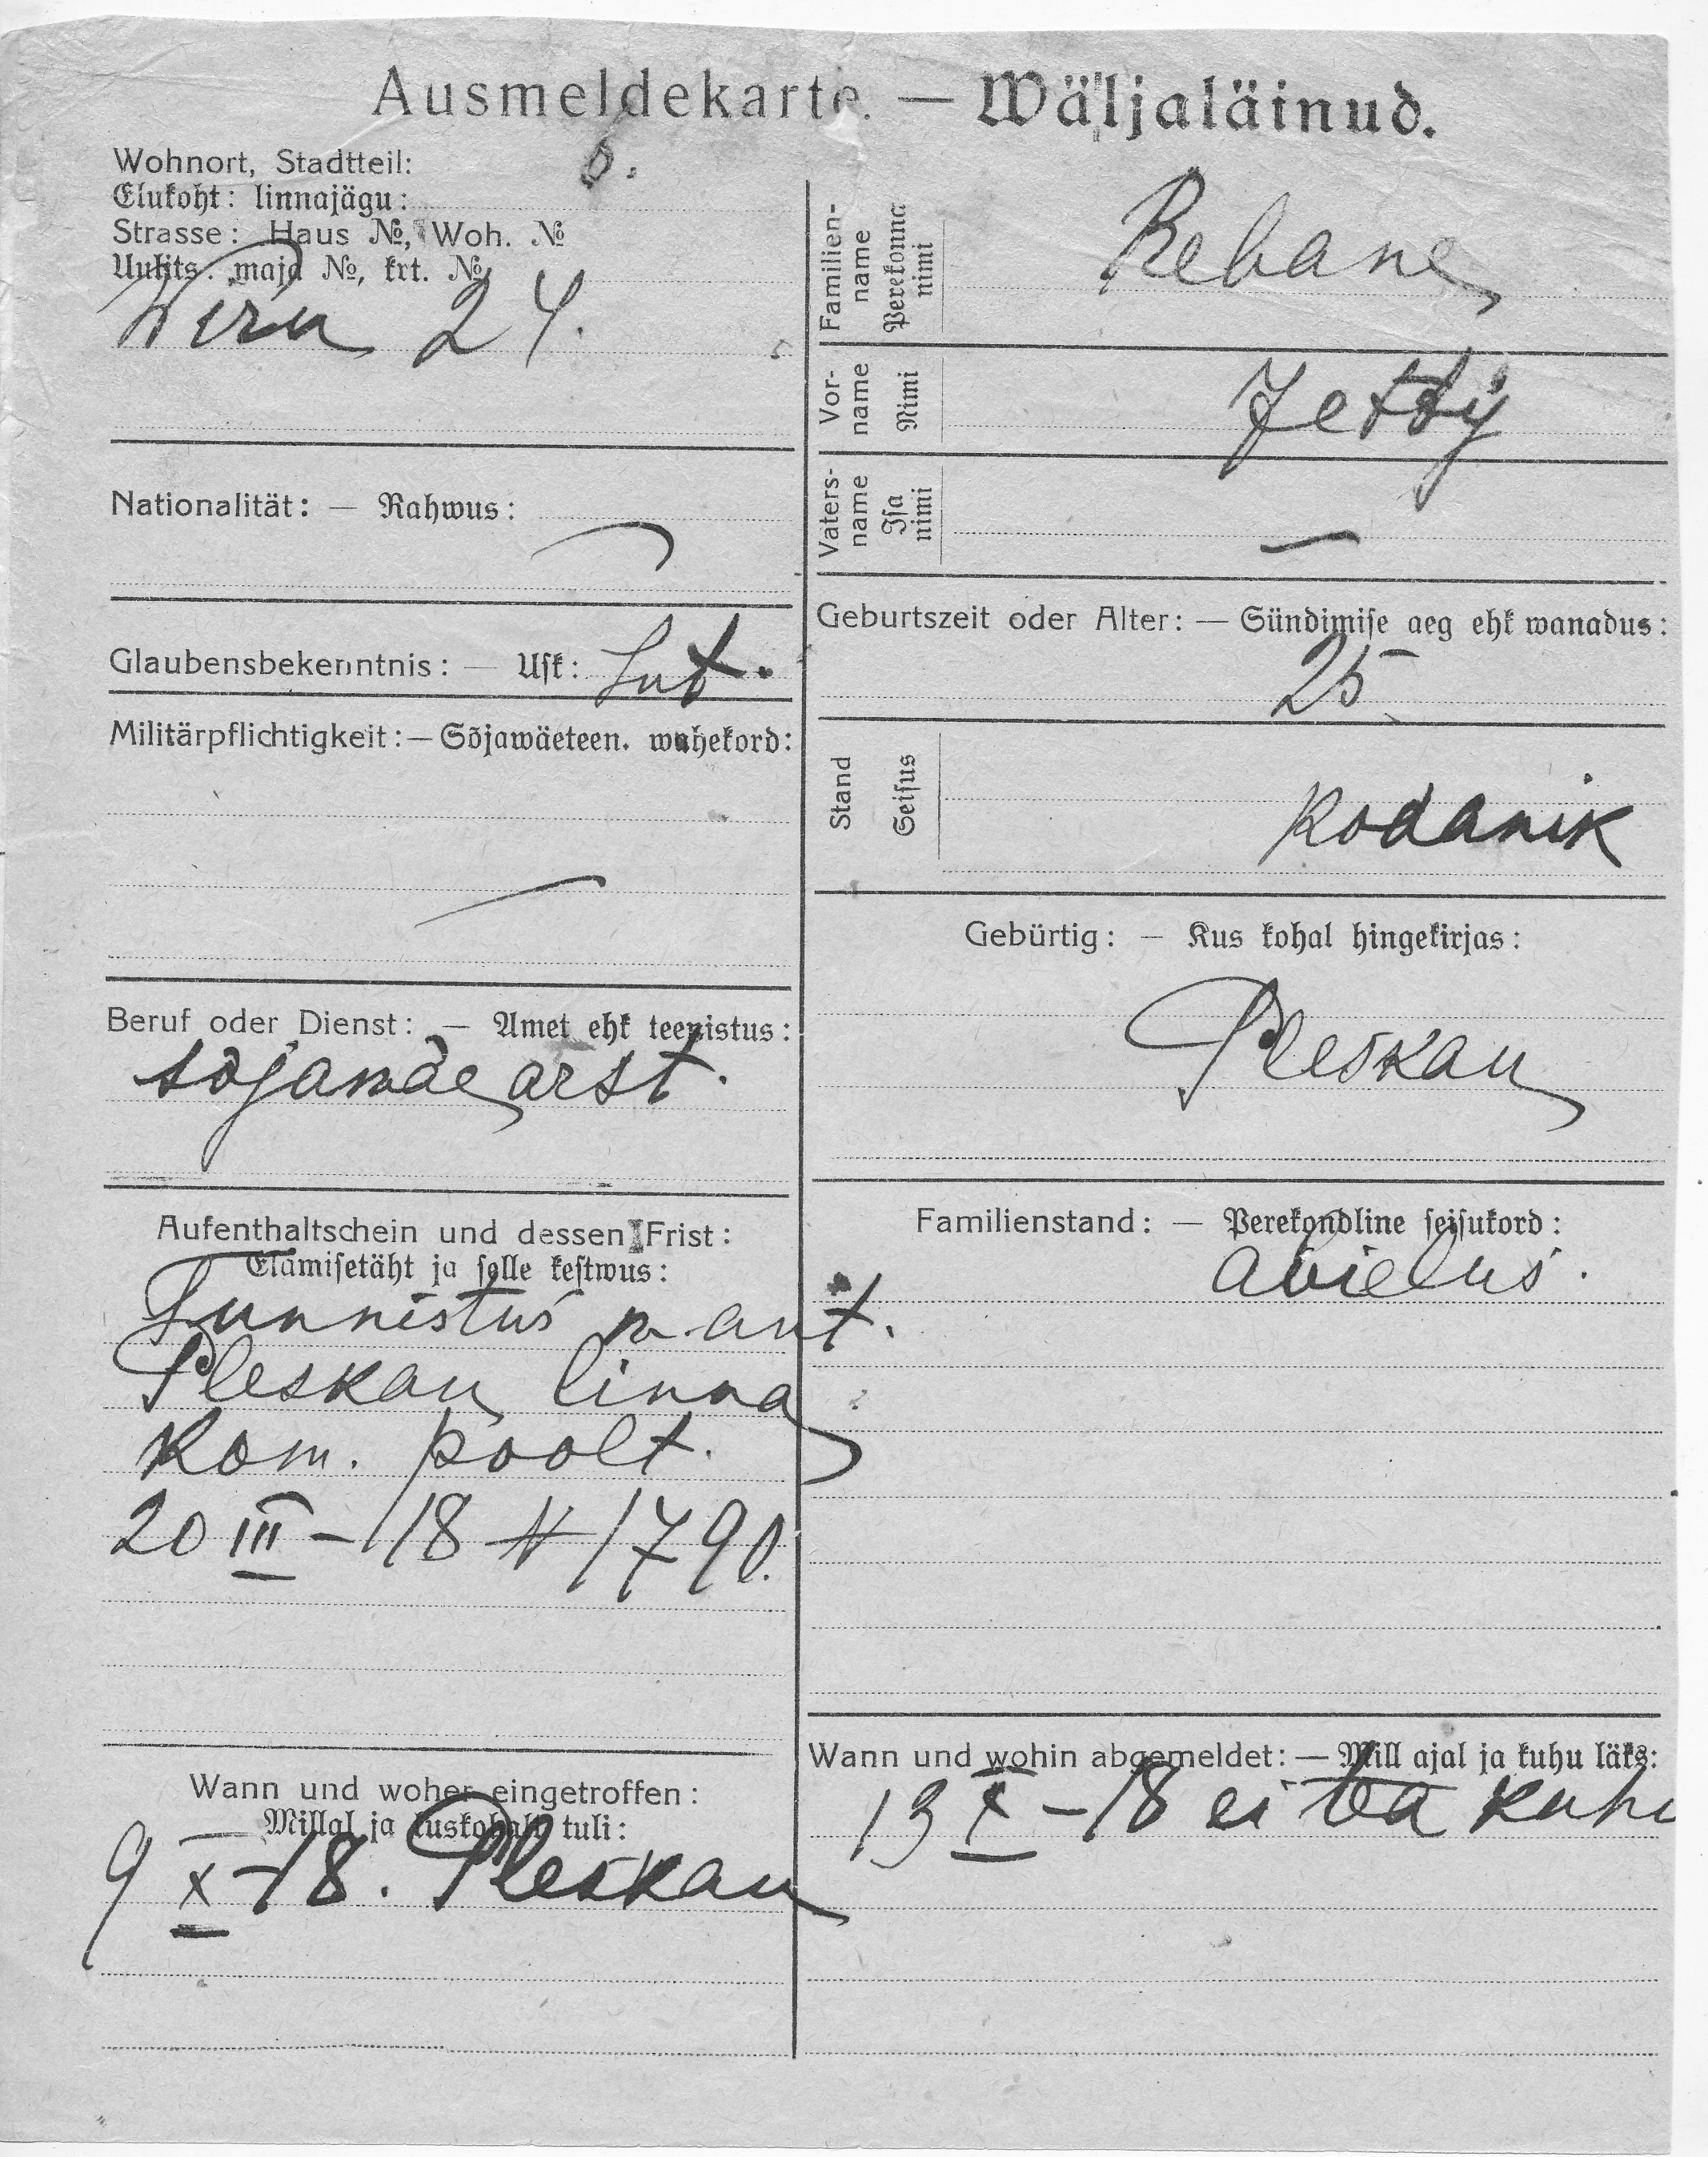 Ausmeldekarte. — Wäljaläinud.
Wohnort, Stadtteil: 6.
Elukoht: linnajägu:
Strasse: Haus №, Woh. №
Uulits: maja №, krt. №
Wiru 24.
Nationalität: — Rahwus:
Glaubensbekenntnis: — Usk: Lut.
Militärpflichtigkeit: — Sõjawäeteen. wahekord:
Beruf oder Dienst: — Amet ehk teenistus:
sõjawäe arst.
Aufenthaltschein und dessen Frist:
Elamisetäht ja selle kestwus:
Tunnistus
Pleskau linna
kom. poolt.
20 III – 18 N 1790.
Wann und woher eingetroffen:
Millal ja kuskohalt tuli:
9 X – 18. Pleskau
Familien-
name
Perekonna
nimi
Rebane
Vor-
name
Nimi
Jetty
Vaters-
name
Isa
nimi
—
Geburtszeit oder Alter: — Sündimise aeg ehk wanadus:
25
Stand
Seisus
Kodanik
Gebürtig: — Kus kohal hingekirjas:
Pleskau
Familienstand: — Perekondline seisukord:
abielus.
Wann und wohin abgemeldet: — Mill ajal ja kuhu läks:
13 X – 18 ei tea kuhu